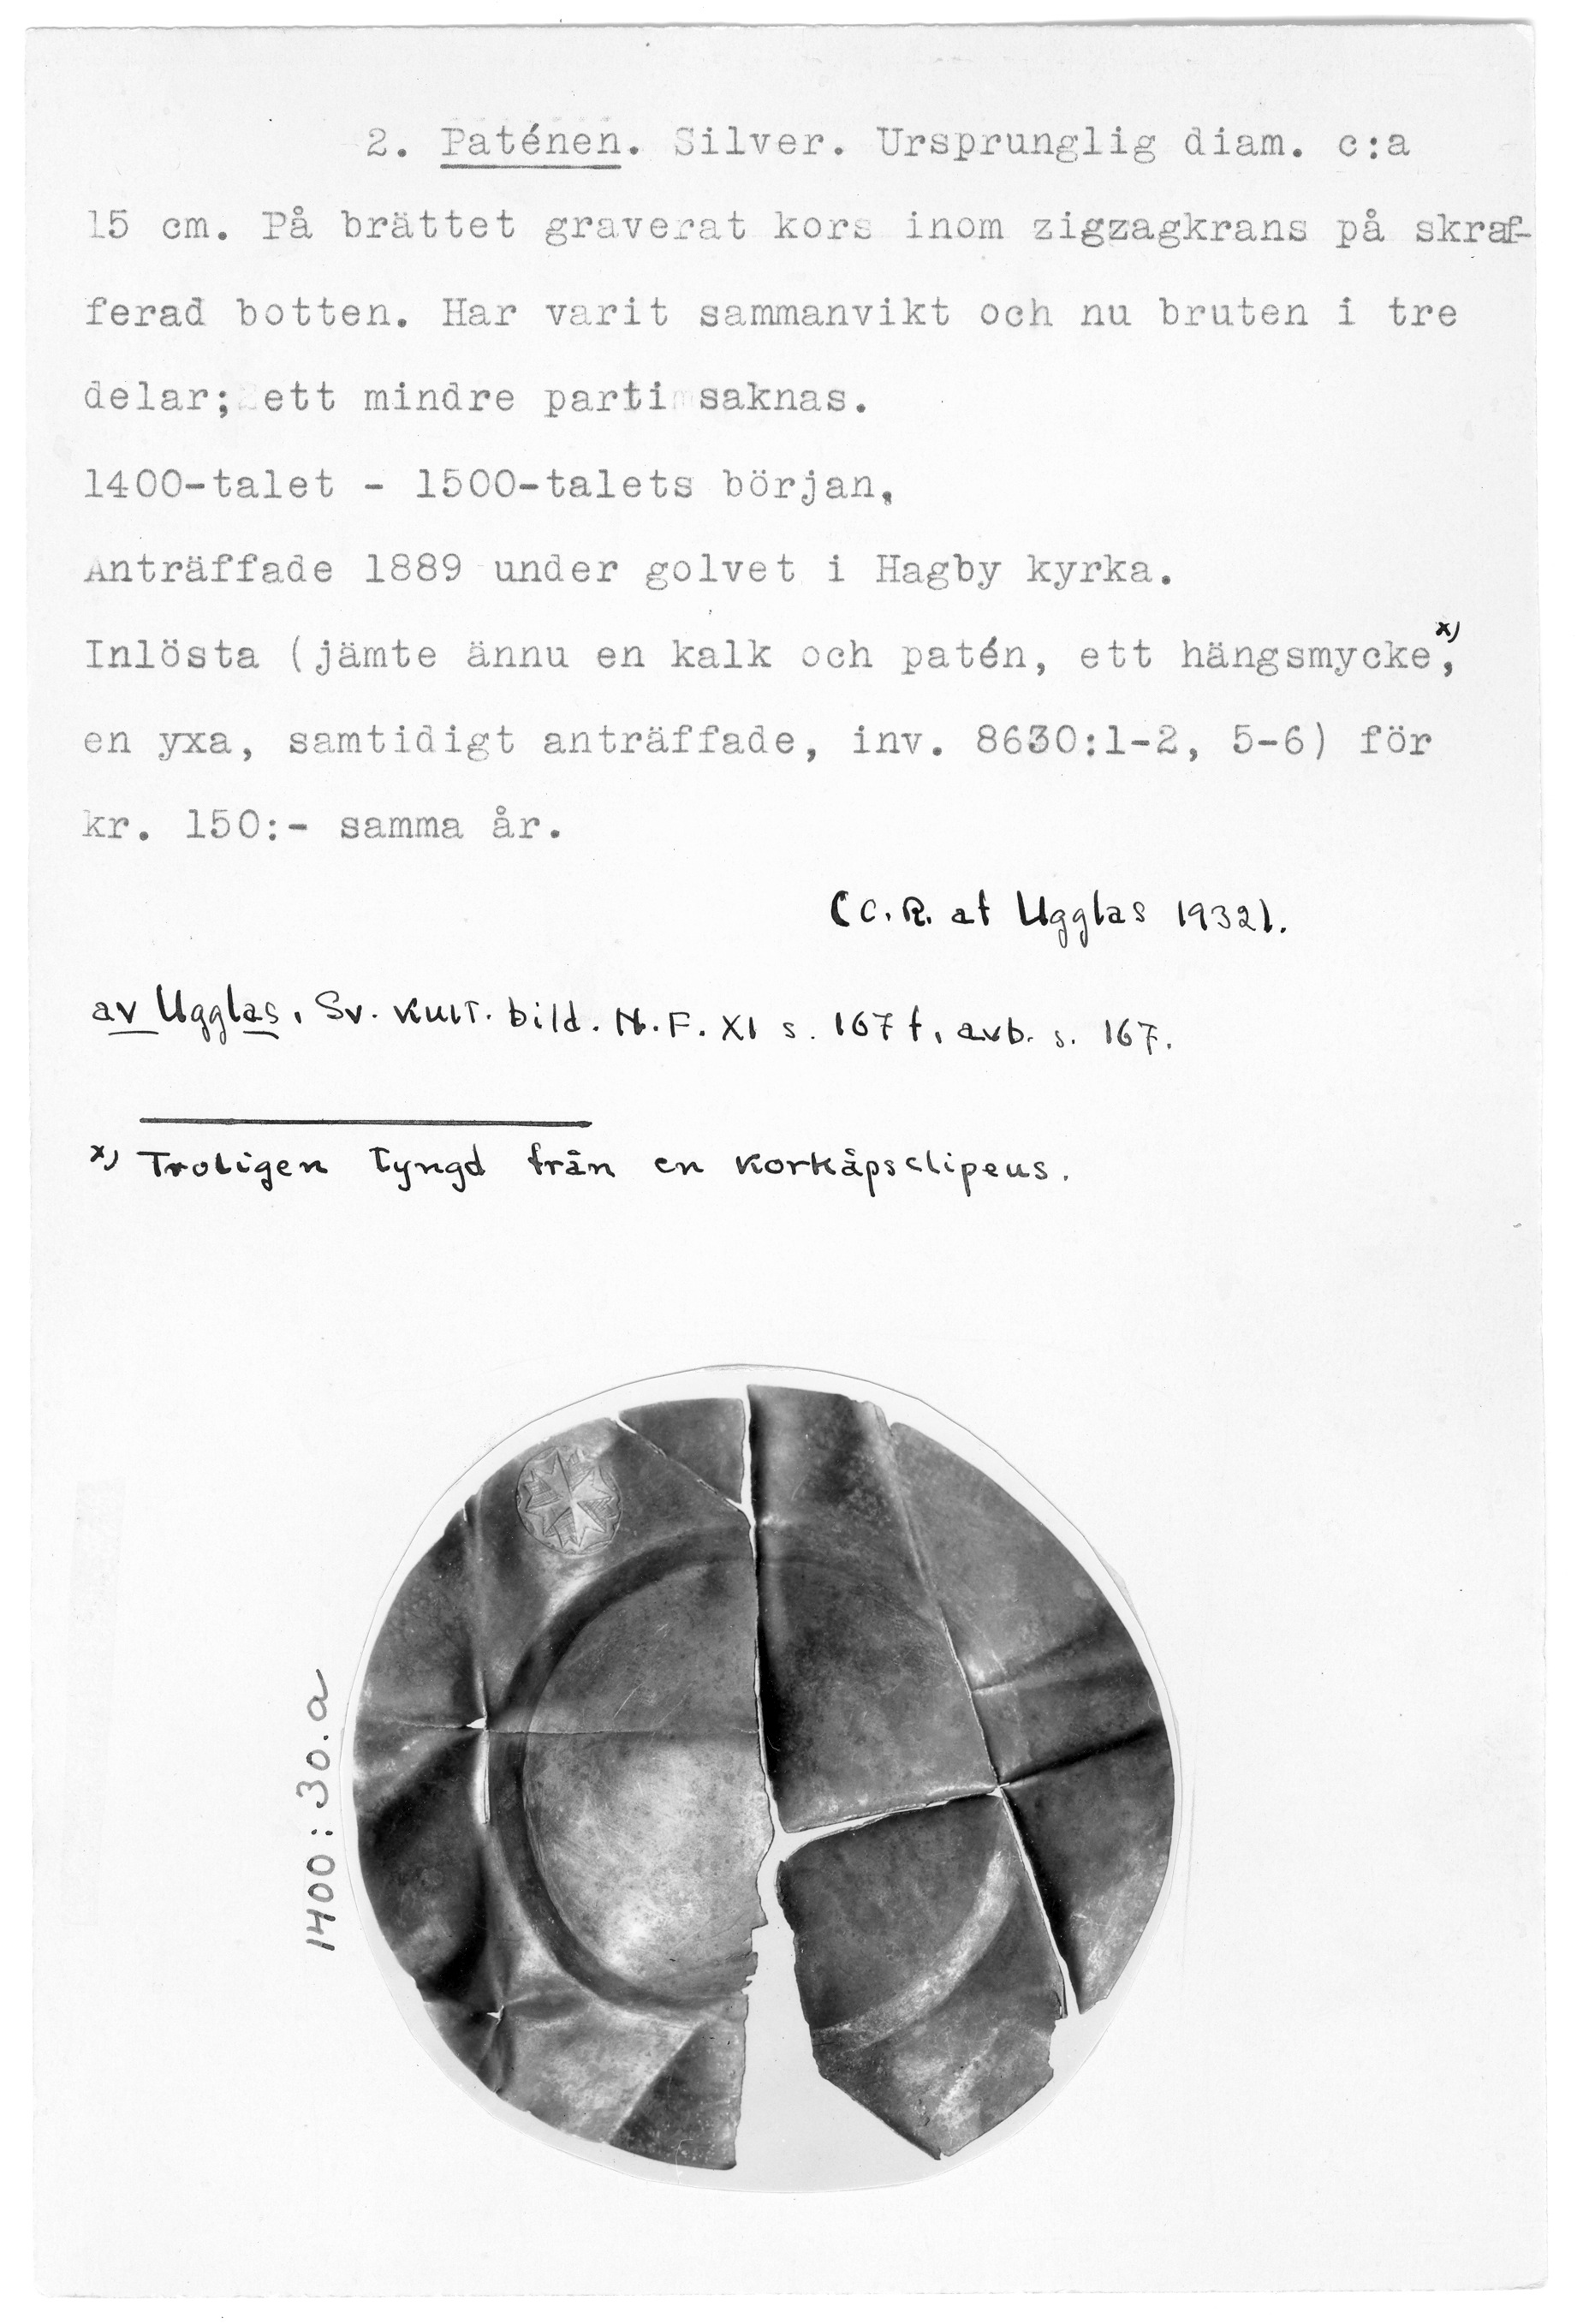 2. Paténen. Silver. Ursprunglig diam. c:a
15 cm. På brättet graverat kors inom zigzagkrans på skraf-
ferad botten. Har varit sammanvikt och nu bruten i tre
delar; ett mindre parti saknas.
1400-talet - 1500-talets början.
Anträffade 1889 under golvet i Hagby kyrka.
Inlösta (jämte ännu en kalk och patén, ett hängsmycke x),
en yxa, samtidigt anträffade, inv. 8630:1-2, 5-6) för
kr. 150:- samma år.
(C.R. af Ugglas 1932).
av Ugglas, Sv. Kult. bild. N.F. XI s. 167 f, avb. s. 167.
x) Troligen tyngd från en korkåpsclipeus.
1400:30.a